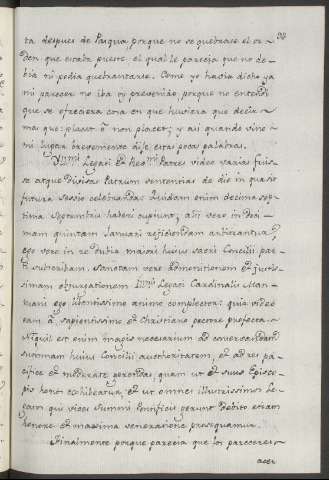 98
ta despues de Pasqua, porque no se quebrase el or-
den que estaba puesto, el qual le parecia que no de-
bia ni podia quebrantarse. Como yo havia dicho ya
mi parecer no iba oy prevenido, porque no entendi
que se ofreciera cosa en que huviera que decir
mas que: placet ó non placet; y asi quando vino
mi lugar brevemente dije estas pocas palabras.
Yll.mi Legati et Re.mi Patres video varias fuis-
se atque divisas Patrum sententias de die in quo
futura sessio celebranda: Quidam enim decima sep-
tima Septembris haberi cupiunt; alii vero in deci-
mam quintam Januarii reficiendam arbitrantur;
ego vero in re dubia maiori huius sacri Concilii par-
ti subscribam. Sanctam vero admonitionem et justis-
simam obiurgationem Ill.mi Legati Cardinalis Man-
tuani ego libentissimo animo complector: quia quidem
à sapientissimo et Christiano pectore profecta.
Niquil est enim magis necessarium ad conservandam
summam huius Concilii authoritatem, et ad res pa-
cifice et moderate gerendas quam ut et suus Episco-
pis honor exhibeatur, et ut omnes illustrissimos Le-
gatos qui vices Summi Pontificis gerunt debito etiam
honore et maxima veneratione prosequamur.
Finalmente porque parecia que los pareceres